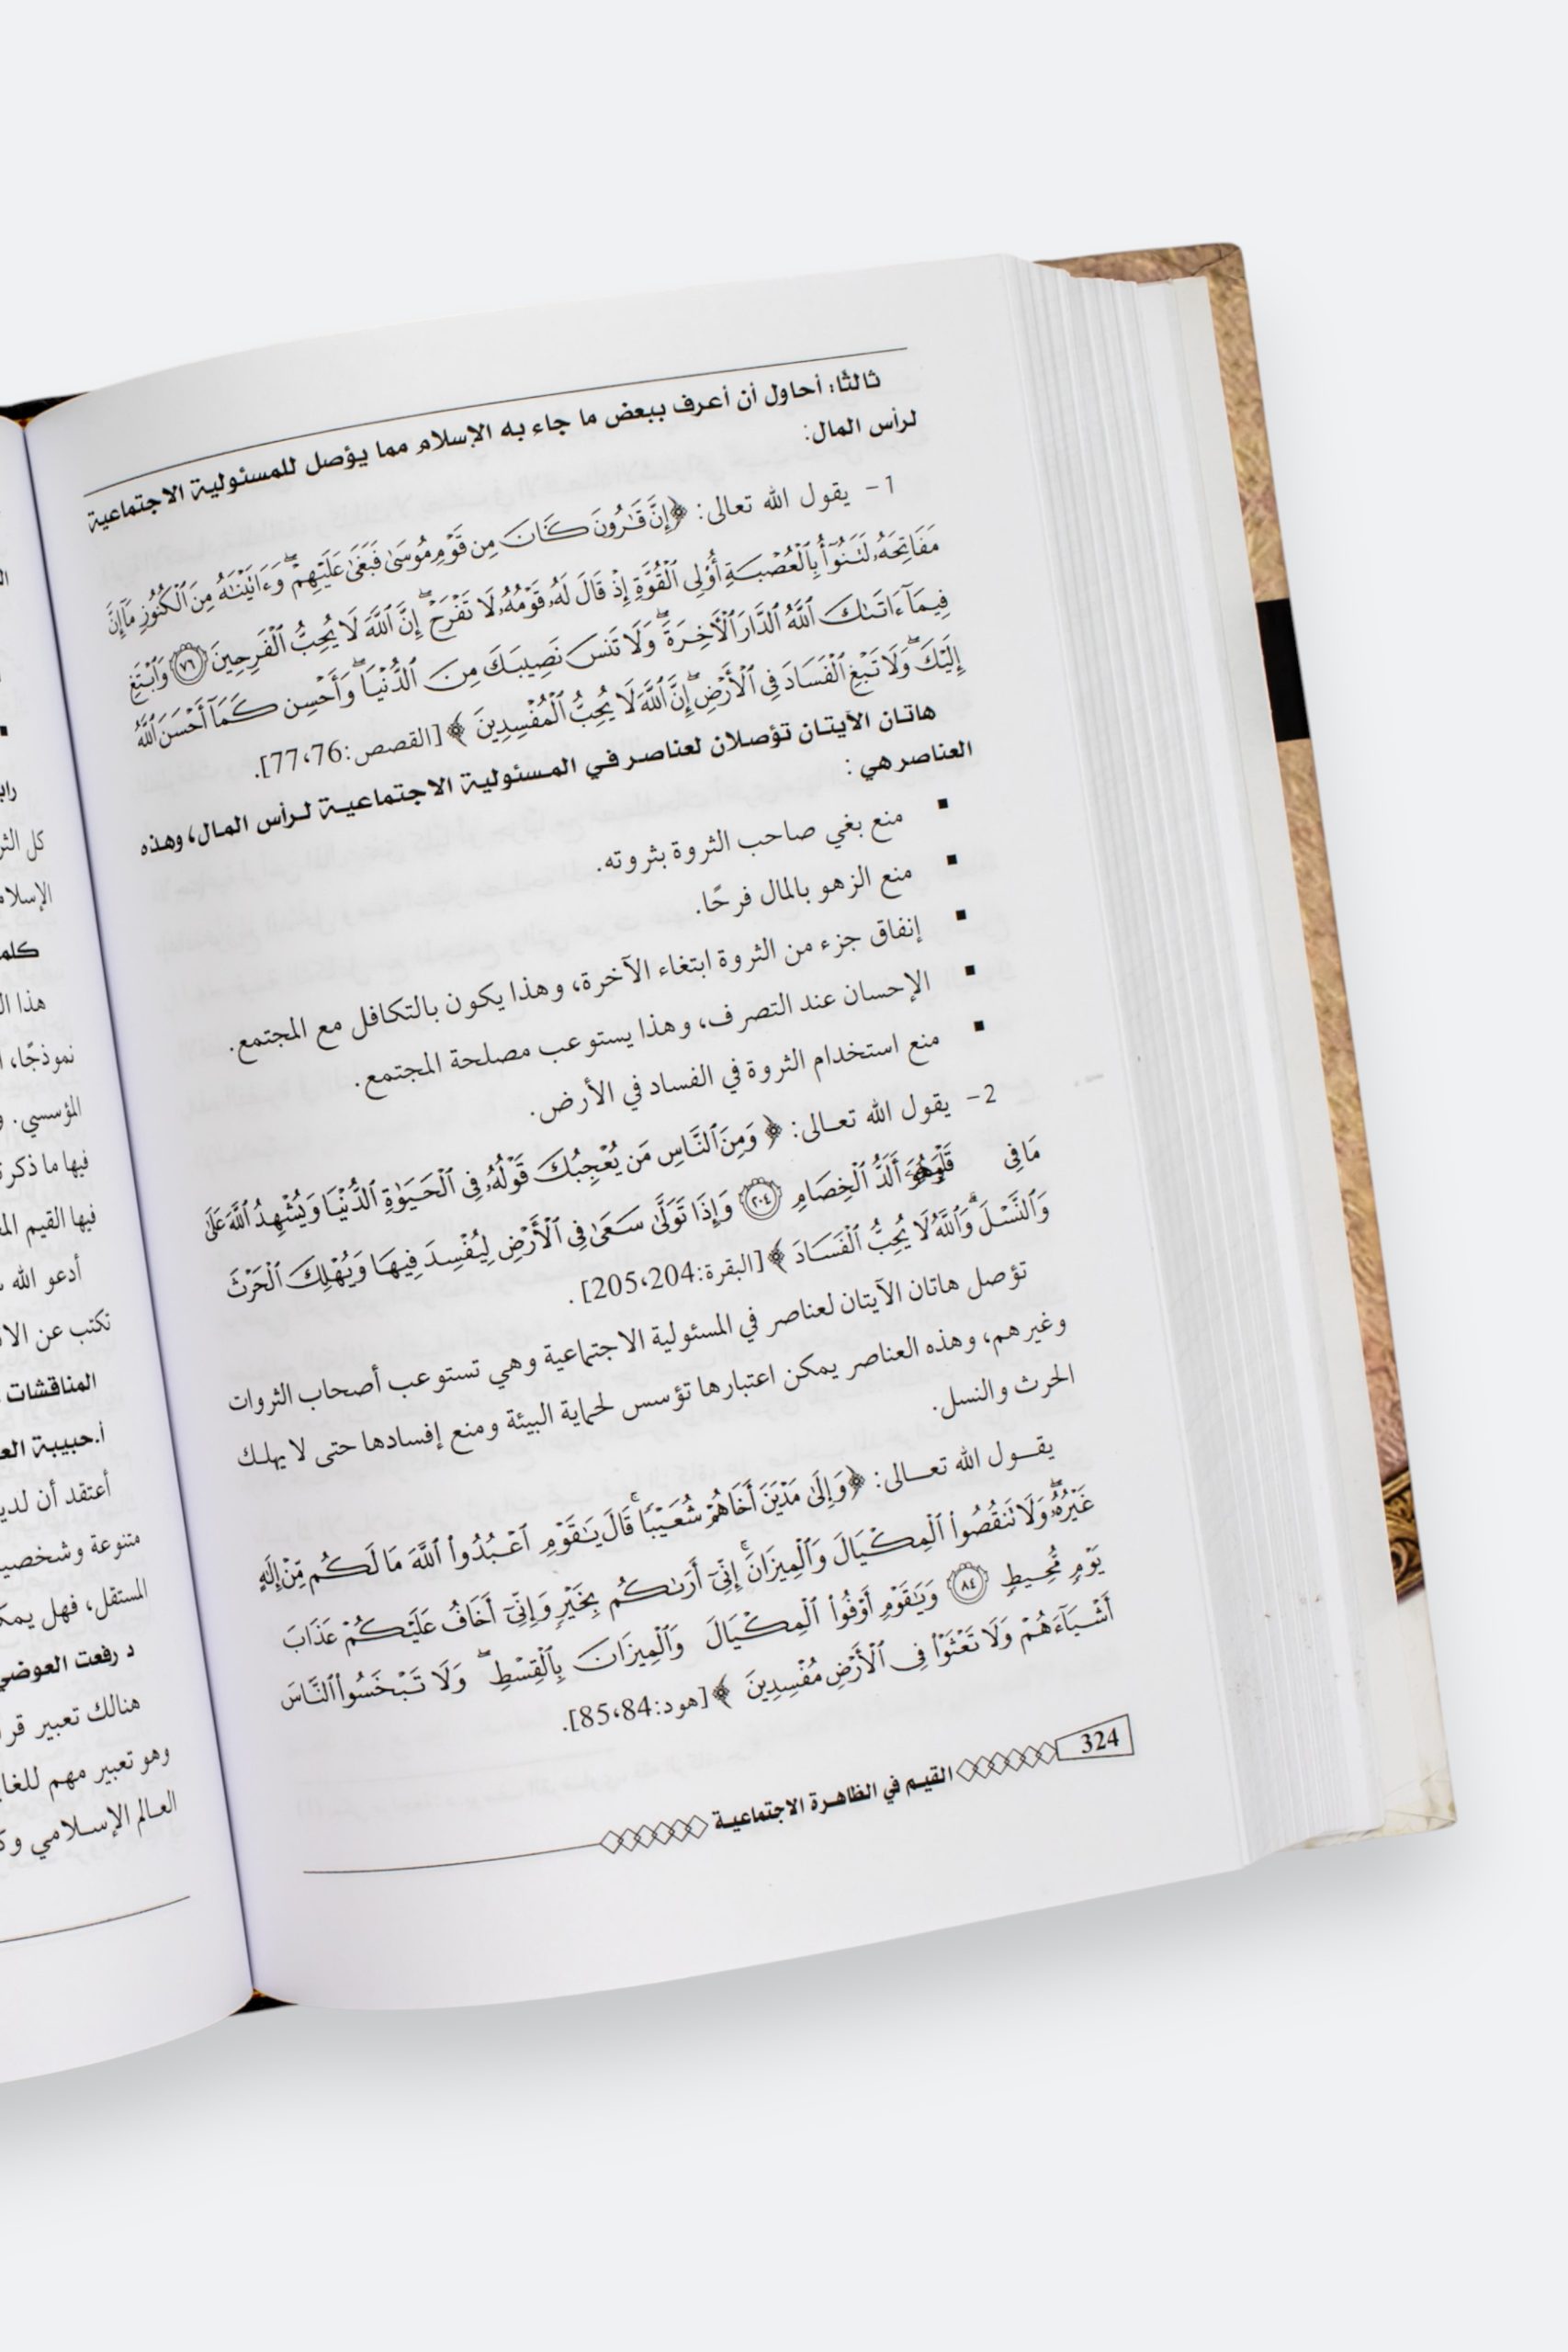 ثالثًا: أحاول أن أعرف ببعض ما جاء به الإسلام مما يؤصل للمسئولية الاجتماعية
لرأس المال:
1- يقول الله تعالى: ﴿إِنَّ قَٰرُونَ كَانَ مِن قَوْمِ مُوسَىٰ فَبَغَىٰ عَلَيْهِمْ ۖ وَءَاتَيْنَٰهُ مِنَ ٱلْكُنُوزِ مَآ إِنَّ
مَفَاتِحَهُۥ لَتَنُوٓأُ بِٱلْعُصْبَةِ أُو۟لِى ٱلْقُوَّةِ إِذْ قَالَ لَهُۥ قَوْمُهُۥ لَا تَفْرَحْ ۖ إِنَّ ٱللَّهَ لَا يُحِبُّ ٱلْفَرِحِينَ ۝٧٦ وَٱبْتَغِ
فِيمَآ ءَاتَىٰكَ ٱللَّهُ ٱلدَّارَ ٱلْءَاخِرَةَ ۖ وَلَا تَنسَ نَصِيبَكَ مِنَ ٱلدُّنْيَا ۖ وَأَحْسِن كَمَآ أَحْسَنَ ٱللَّهُ
إِلَيْكَ ۖ وَلَا تَبْغِ ٱلْفَسَادَ فِى ٱلْأَرْضِ ۖ إِنَّ ٱللَّهَ لَا يُحِبُّ ٱلْمُفْسِدِينَ ﴾ [القصص:76،77].
هاتان الآيتان تؤصلان لعناصر في المسئولية الاجتماعية لرأس المال، وهذه
العناصر هي :
▪ منع بغي صاحب الثروة بثروته.
▪ منع الزهو بالمال فرحًا.
▪ إنفاق جزء من الثروة ابتغاء الآخرة، وهذا يكون بالتكافل مع المجتمع.
▪ الإحسان عند التصرف، وهذا يستوعب مصلحة المجتمع.
▪ منع استخدام الثروة في الفساد في الأرض.
2- يقول الله تعالى: ﴿ وَمِنَ ٱلنَّاسِ مَن يُعْجِبُكَ قَوْلُهُۥ فِى ٱلْحَيَوٰةِ ٱلدُّنْيَا وَيُشْهِدُ ٱللَّهَ عَلَىٰ
مَا فِى أَلَدُّ ٱلْخِصَامِ ۝٢٠٤ وَإِذَا تَوَلَّىٰ سَعَىٰ فِى ٱلْأَرْضِ لِيُفْسِدَ فِيهَا وَيُهْلِكَ ٱلْحَرْثَ
وَٱلنَّسْلَ ۗ وَٱللَّهُ لَا يُحِبُّ ٱلْفَسَادَ ﴾ [البقرة:204،205] .
تؤصل هاتان الآيتان لعناصر في المسئولية الاجتماعية وهي تستوعب أصحاب الثروات
وغيرهم، وهذه العناصر يمكن اعتبارها تؤسس لحماية البيئة ومنع إفسادها حتى لا يهلك
الحرث والنسل.
يقول الله تعالى: ﴿وَإِلَىٰ مَدْيَنَ أَخَاهُمْ شُعَيْبًا ۚ قَالَ يَٰقَوْمِ ٱعْبُدُوا۟ ٱللَّهَ مَا لَكُم مِّنْ إِلَٰهٍ
غَيْرُهُۥ ۖ وَلَا تَنقُصُوا۟ ٱلْمِكْيَالَ وَٱلْمِيزَانَ ۚ إِنِّىٓ أَرَىٰكُم بِخَيْرٍ وَإِنِّىٓ أَخَافُ عَلَيْكُمْ عَذَابَ
يَوْمٍ مُّحِيطٍ ۝٨٤ وَيَٰقَوْمِ أَوْفُوا۟ ٱلْمِكْيَالَ وَٱلْمِيزَانَ بِٱلْقِسْطِ ۖ وَلَا تَبْخَسُوا۟ ٱلنَّاسَ
أَشْيَآءَهُمْ وَلَا تَعْثَوْا۟ فِى ٱلْأَرْضِ مُفْسِدِينَ ﴾ [هود:84،85].
324 القيم في الظاهرة الاجتماعية
كل
هذا
نموذجًا،
المؤسسي.
فيها ما
فيها القيم
أدعو الله
تكتب عن
المناقشات
أ.حبيبة
أعتقد أن
متنوعة
المستقل، فهل
د رفعت العوضي
هنالك تعبير
وهو تعبير مهم
العالم الإسلامي